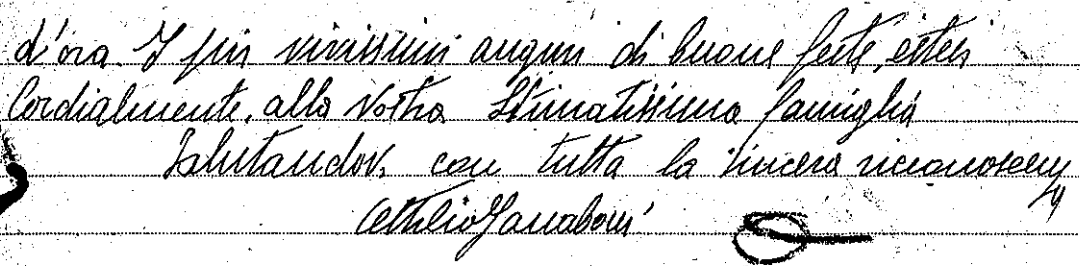 d'ora. I più vivissimi auguri di buone feste, estesi
Cordialmente, alla Vostra Stimatissima famiglia
Salutandov, con tutta la sincera riconoscenz